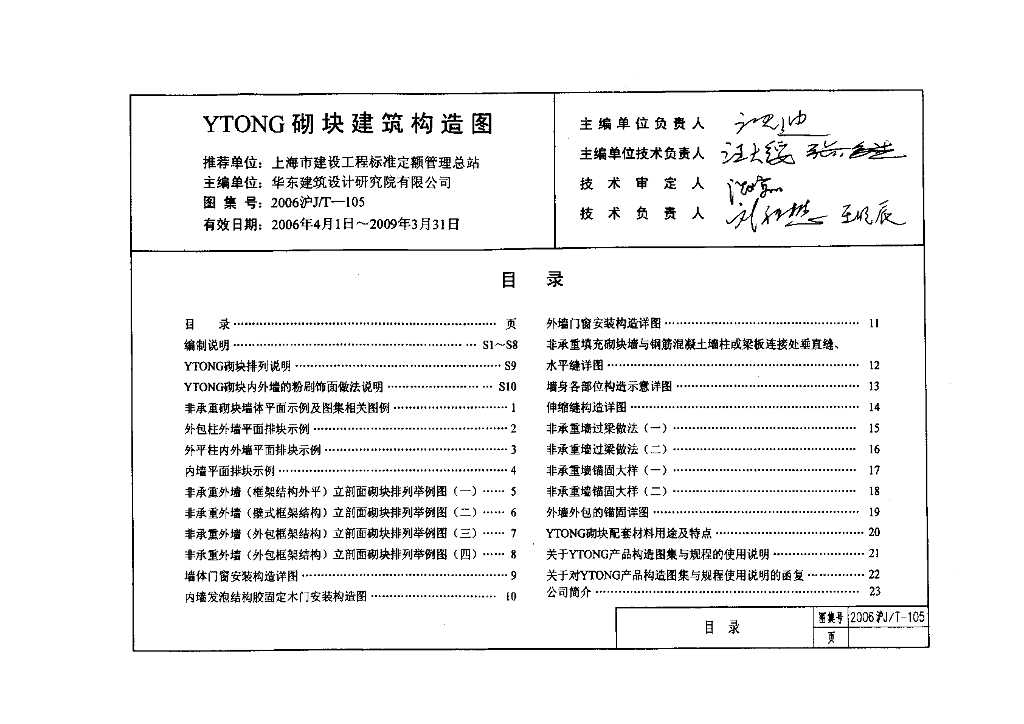 YTONG砌块建筑构造图
推荐单位：上海市建设工程标准定额管理总站
主编单位：华东建筑设计研究院有限公司
图集号：2006沪J/T—105
有效日期：2006年4月1日～2009年3月31日
主编单位负责人
主编单位技术负责人 汪大绥
技术审定人
技术负责人
目 录
目 录 页
编制说明 S1～S8
YTONG砌块排列说明 S9
YTONG砌块内外墙的粉刷饰面做法说明 S10
非承重砌块墙体平面示例及图集相关图例 1
外包柱外墙平面排块示例 2
外平柱内外墙平面排块示例 3
内墙平面排块示例 4
非承重外墙（框架结构外平）立剖面砌块排列举例图（一） 5
非承重外墙（壁式框架结构）立剖面砌块排列举例图（二） 6
非承重外墙（外包框架结构）立剖面砌块排列举例图（三） 7
非承重外墙（外包框架结构）立剖面砌块排列举例图（四） 8
墙体门窗安装构造详图 9
内墙发泡结构胶固定木门安装构造图 10
外墙门窗安装构造详图 11
非承重填充砌块墙与钢筋混凝土墙柱或梁板连接处垂直缝、
水平缝详图 12
墙身各部位构造示意详图 13
伸缩缝构造详图 14
非承重墙过梁做法（一） 15
非承重墙过梁做法（二） 16
非承重墙锚固大样（一） 17
非承重墙锚固大样（二） 18
外墙外包的锚固详图 19
YTONG砌块配套材料用途及特点 20
关于YTONG产品构造图集与规程的使用说明 21
关于对YTONG产品构造图集与规程使用说明的函复 22
公司简介 23
目 录
图集号 2006沪J/T-105
页